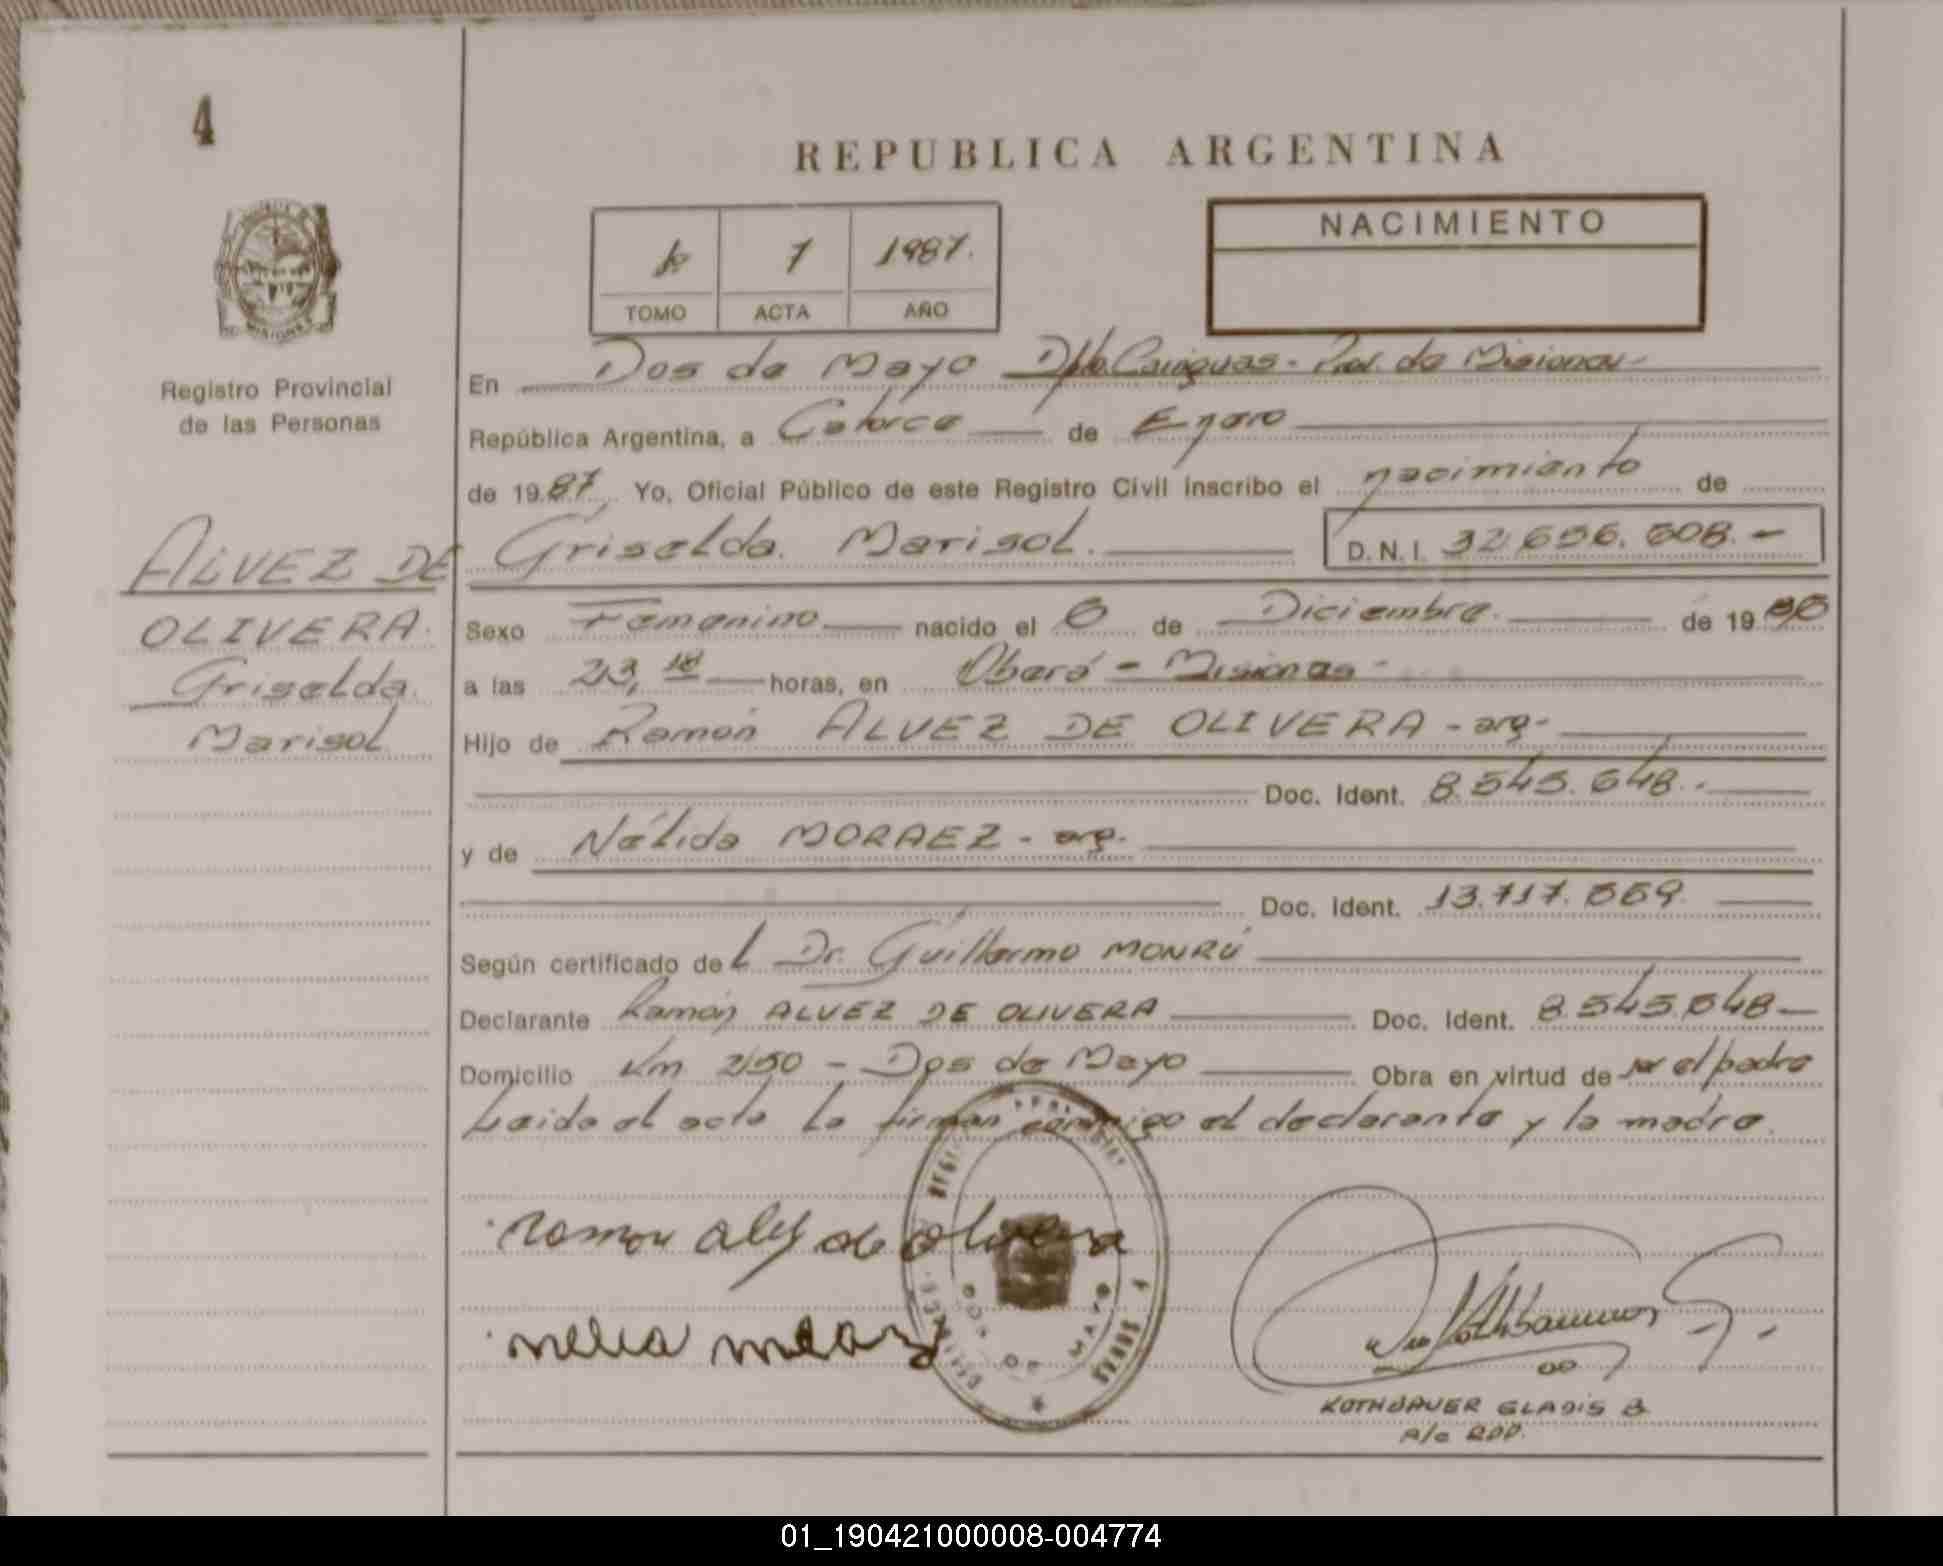 4
REPUBLICA ARGENTINA
NACIMIENTO
7 1987.
TOMO ACTA AÑO
MISIONES
Registro Provincial
de las Personas
En Dos de Mayo Dpto. Cainguas - Prov. de Misiones -
República Argentina, a Catorce de Enero
de 1987, Yo, Oficial Público de este Registro Civil inscribo el nacimiento de
ALVEZ DE
OLIVERA
Griselda
Marisol
Griselda Marisol. D.N.I. 32.696.608.-
Sexo Femenino nacido el 6 de Diciembre de 1986
a las 23,10 horas, en Oberá - Misiones -
Hijo de Ramón ALVEZ DE OLIVERA - arg -
Doc. Ident. 8.545.648.-
y de Nélida MORAEZ - arg.
Doc. Ident. 13.717.559.
Según certificado del Dr. Guillermo MONRÚ
Declarante Ramón ALVEZ DE OLIVERA Doc. Ident. 8.545.648-
Domicilio Km 250 - Dos de Mayo Obra en virtud de ser el padre
Leido el acta la firman conmigo el declarante y la madre.
Ramon de olivera
DOS DE MAYO
KOTHBAUER GLADIS B
A/c RPP.
01_190421000008-004774